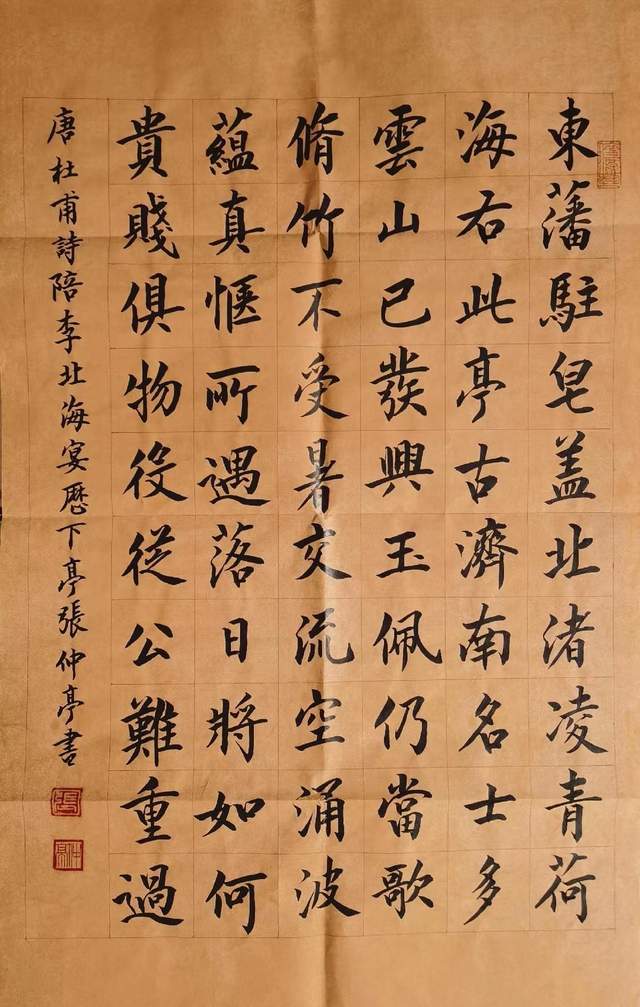 東藩駐皂盖北渚凌青荷
海右此亭古濟南名士多
雲山已發興玉佩仍當歌
脩竹不受暑交流空涌波
蘊真愜所遇落日將如何
貴賤俱物役從公難重過
唐杜甫詩陪李北海宴歷下亭張仲亭書